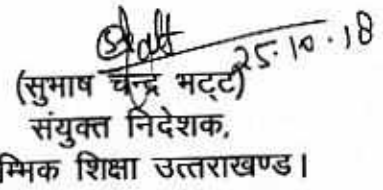 25.10.18
(सुभाष चन्द्र भट्ट)
संयुक्त निदेशक,
म्भिक शिक्षा उत्तराखण्ड।